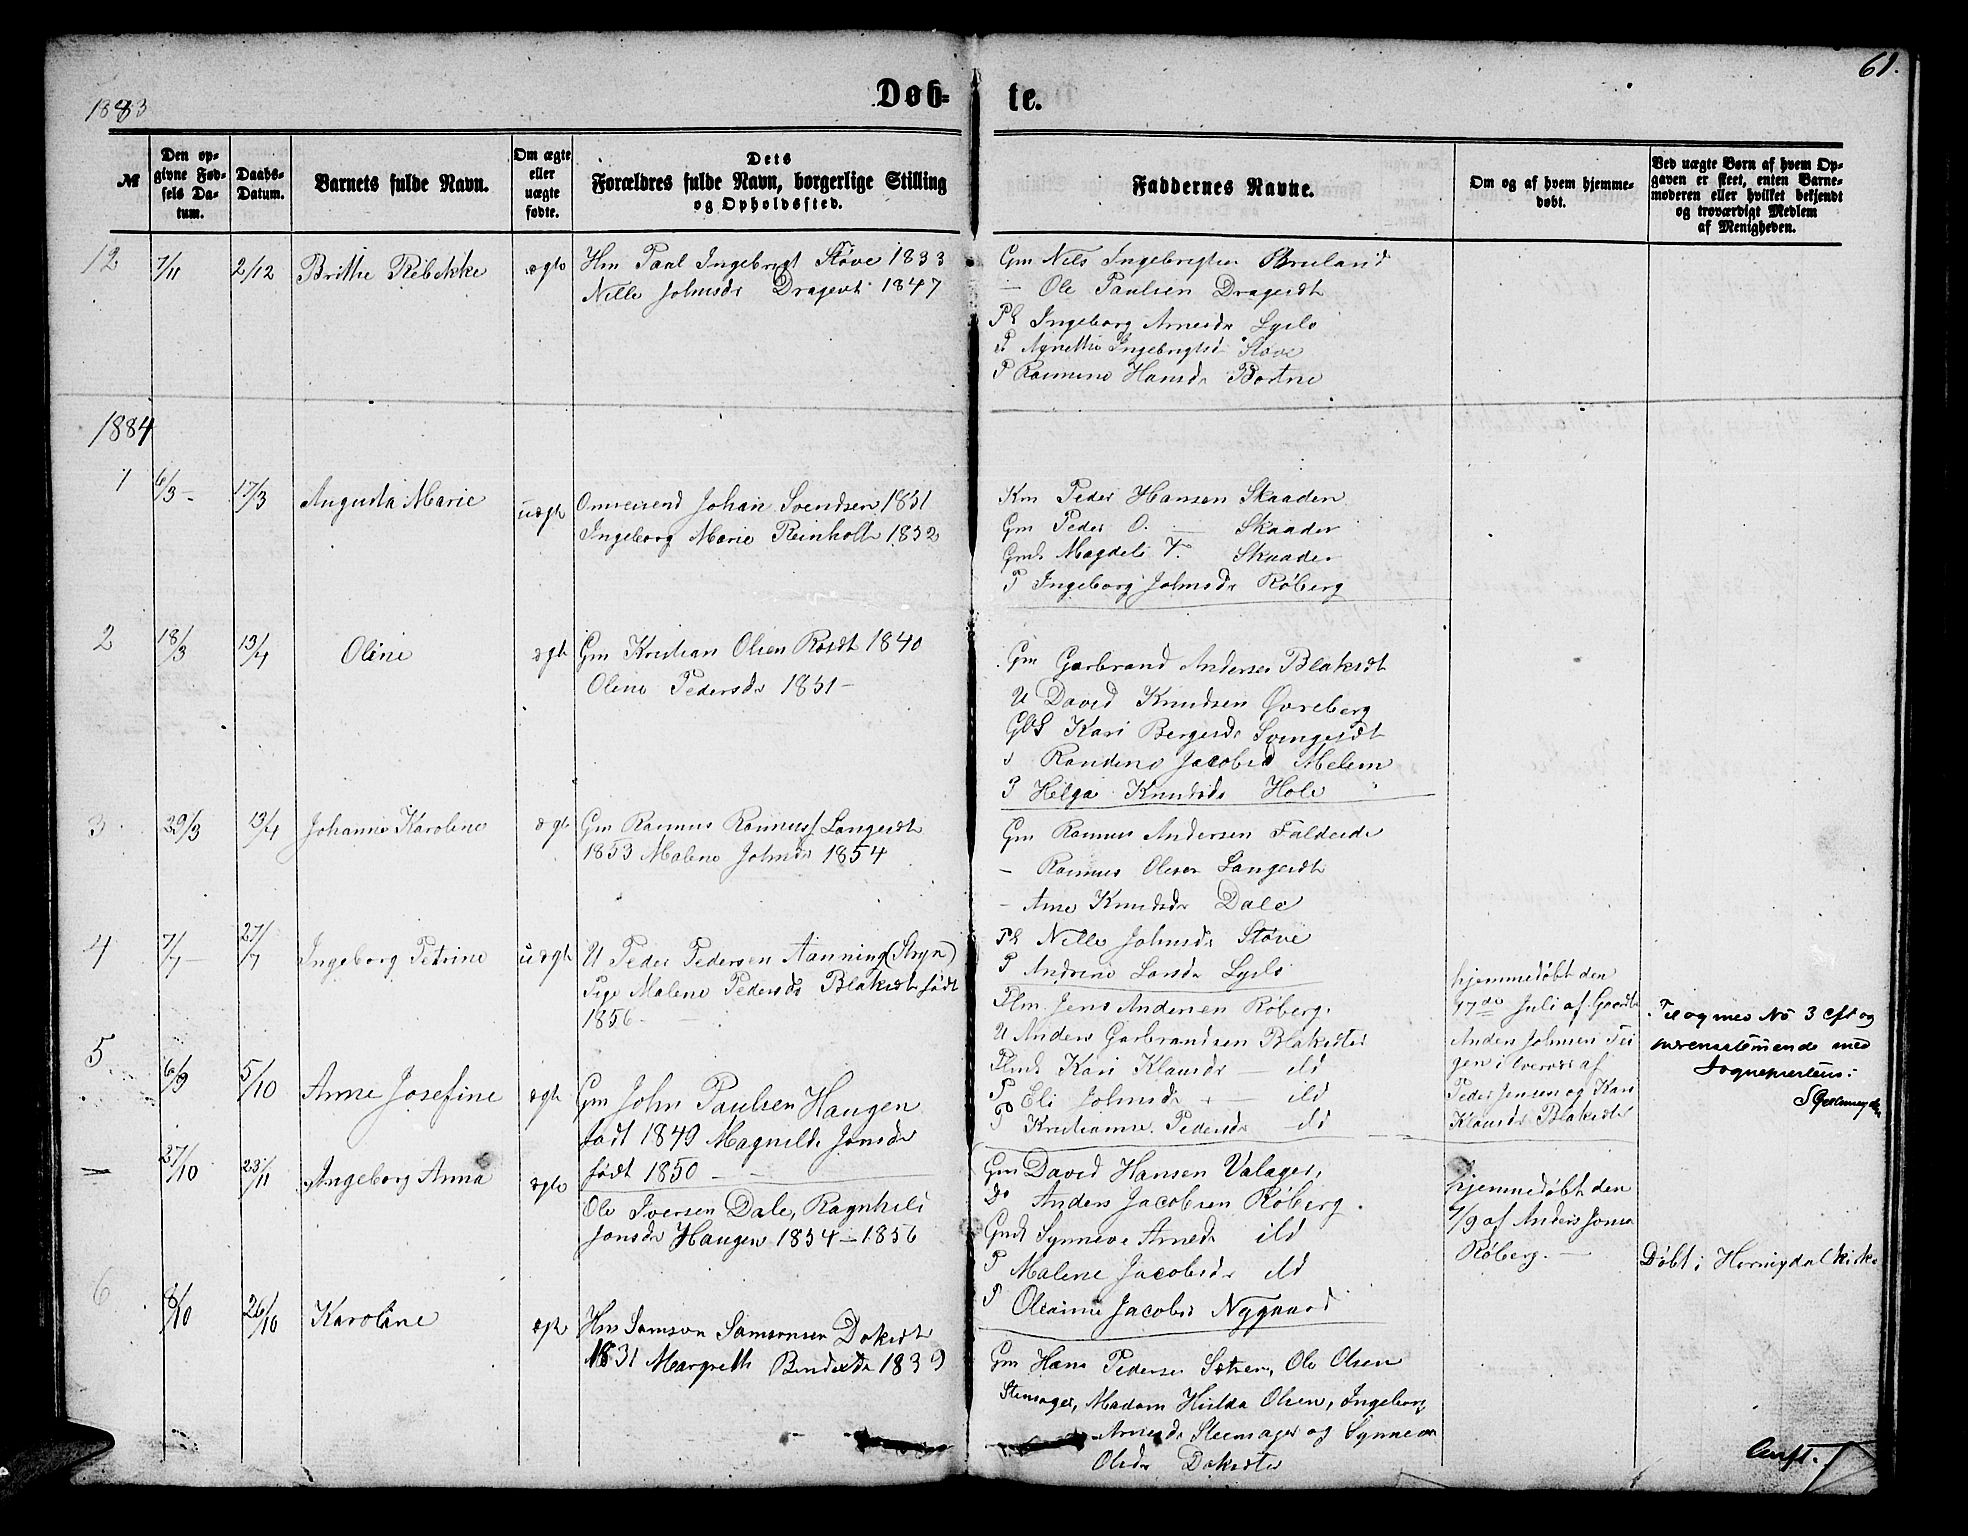 61.
1883
Døb- te.
№
Den op-
givne Fød-
sels Da-
tum.
Daabs-
Datum.
Barnets fulde Navn.
Om ægte
eller
uægte
fødte.
Dets
Forældres fulde Navn, borgerlige Stilling
og Opholdssted.
Faddernes Navne.
Om og af hvem hjemme-
døbt.
Ved uægte Børn af hvem Op-
gaven er skeet, enten Barne-
moderen eller hvilket bekjendt
og troværdigt Medlem
af Menigheden.
12 7/11 2/12 Brithe Rebekke ægte
Hm Paal Ingebrigt Støve 1833
Nille Johnsdr Dragesdt 1847
Gm Nils Ingebrigtsen Bruland
— Ole Paulsen Dragesdt
Pl Ingeborg Arnesdr Lyslo
P Agnethe Ingebrigtsd Støve
P Rasmine Hansdr Bortne
1884
1 6/3 - 17/3 Augusta Marie uægte
Omreisend Johan Svendsen 1831
Ingeborg Marie Reinholt 1832
Km Peder Hansen Skaaden
Gm Peder O. — Skaaden
Gmk Magdeli T. Skaaden
P Ingeborg Johnsdr Røberg
2 18/3 13/4 Oline ægte
Gm Kristian Olsen Rosdt 1840
Oline Pedersdr 1851 -
Gm Garbrand Andersen Blaksdt
U David Knudsen Øvreberg
Kari Bergesdr
Randine Jacobsd Melem
P Helga Knudsdr Hole
3 29/3 13/4 Johanne Karoline ægte
Gm Rasmus Rasmuss Langesdt
1853 Malene Johnsdr 1854
Gm Rasmus Andersen Faldeide
— Rasmus Olsen Langesdt
— Arne Knudsdr Dale
Pl Nille Johnsdr Støve
P Andrine Larsdr Lyslo
4 7/7 - 27/7 Ingeborg Petrine uægte
U Peder Pedersen Aanning (Stryn)
Pige Malene Pedersdr Blaksdt født
1856 -
Plm Jens Andersen Røberg.
U Anders Garbrandsen Blaksdter
Plmk Kari Klausdr — ild
P Eli Johnsdr — ild
P Kristianne Pedersdr ild
hjemmedøbt den
17de Juli af Gaardb
Anders Johnsen Tei
gen i Overvær af
Peder Jensen og Kari
Klausdr Blaksdter
No 3 eft og
overensstemmende med
Sognepresten:
5 6/9 5/10 Anne Josefine ægte
Gm John Paulsen Haugen
født 1849 Magnilde Jonsdr
født 1850 —
Gm David Hansen Valager,
Do Anders Jacobsen Røberg.
Gmk Synneve Arnedr ild
P Malene Jacobsdr ild
P Olianne Jacobsd Nygaard
hjemmedøbt den
7/9 af Anders Jonsen
Røberg. —
— 27/10 23/11 Ingeborg Anna ægte
Ole Iversen Dale, Ragnhild
Jonsdr Haugen 1854 - 1856
Døbt i Hornindal kirke
6 8/10 26/10 Karoline ægte
Hm Samson Samsonsen Doksdt
1831 Margrethe Bendixdr 1839
Gm Hans Pedersen Sætren, Ole Olsen
Stensager, Madam Hulda Olsen, Ingeborg
Arnesdr Stensager og Synneva
Olsdr Doksdter